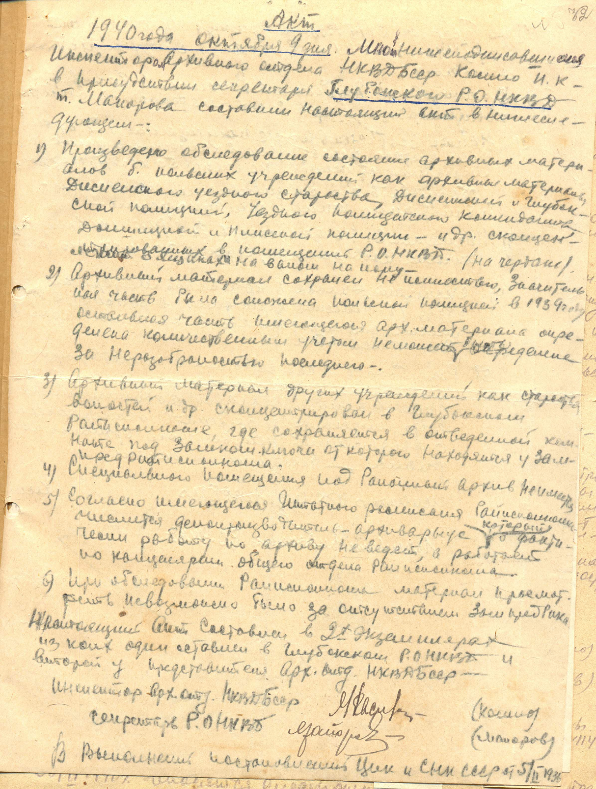 Акт
1940 года октября 9 дня. Мы нижеподписавшиеся
Инспектора архивного отдела НКВД БССР Колио И. К-
в присутствии секретаря Глубокского Р.О. НКВД
т. Маиорова составили настоящий акт в нижесле-
дующем-:
1) Произведено обследование состояния архивных матери-
алов б. польских учреждений как архивных материалов
Дисненского уездного староства, Дисненской и Глубок-
ской полиций, Уездного Полицейского комиссариата
полиции и др. сконцен-
трированных в помещении Р.О. НКВД. (на чердаке).
на полу-
2) Архивный материал сохранен не полностью, Значитель-
ная часть сожжена польской полицией в 1939 году
остальная часть имеющегося арх. материала опре-
делена количественным учетом
За неразобранностью последнего-.
3) Архивный материал других учреждений как староства
волостей и др. сконцентрирован в Глубокском
Райисполкоме где сохраняется в отведенной ком-
нате под Замком ключи от которого находятся у Зам-
предрайисполкома.
4) Специального помещения под Районный Архив не имеется
5) Согласно имеющегося Штатного расписания Райисполкома
числится делопроизводитель-архивариус который факти-
чески работу по архиву не ведет, а работает
по канцелярии общего отдела Райисполкома
6) При обследовании Райисполкома материал просмот-
реть невозможно было за отсутствием Зам пред Рика
Настоящий Акт Составлен в 2х Экземплярах
из коих один оставлен в Глубокском Р.О НКВД и
Второй у представителя Арх. отд. НКВД БССР-
Инспектор Арх. отд. НКВД БССР
(Колио)
секретарь Р.О НКВД
(Маиоров)
В Выполнении постановлений Цик и СНК СССР от 5/II 1936